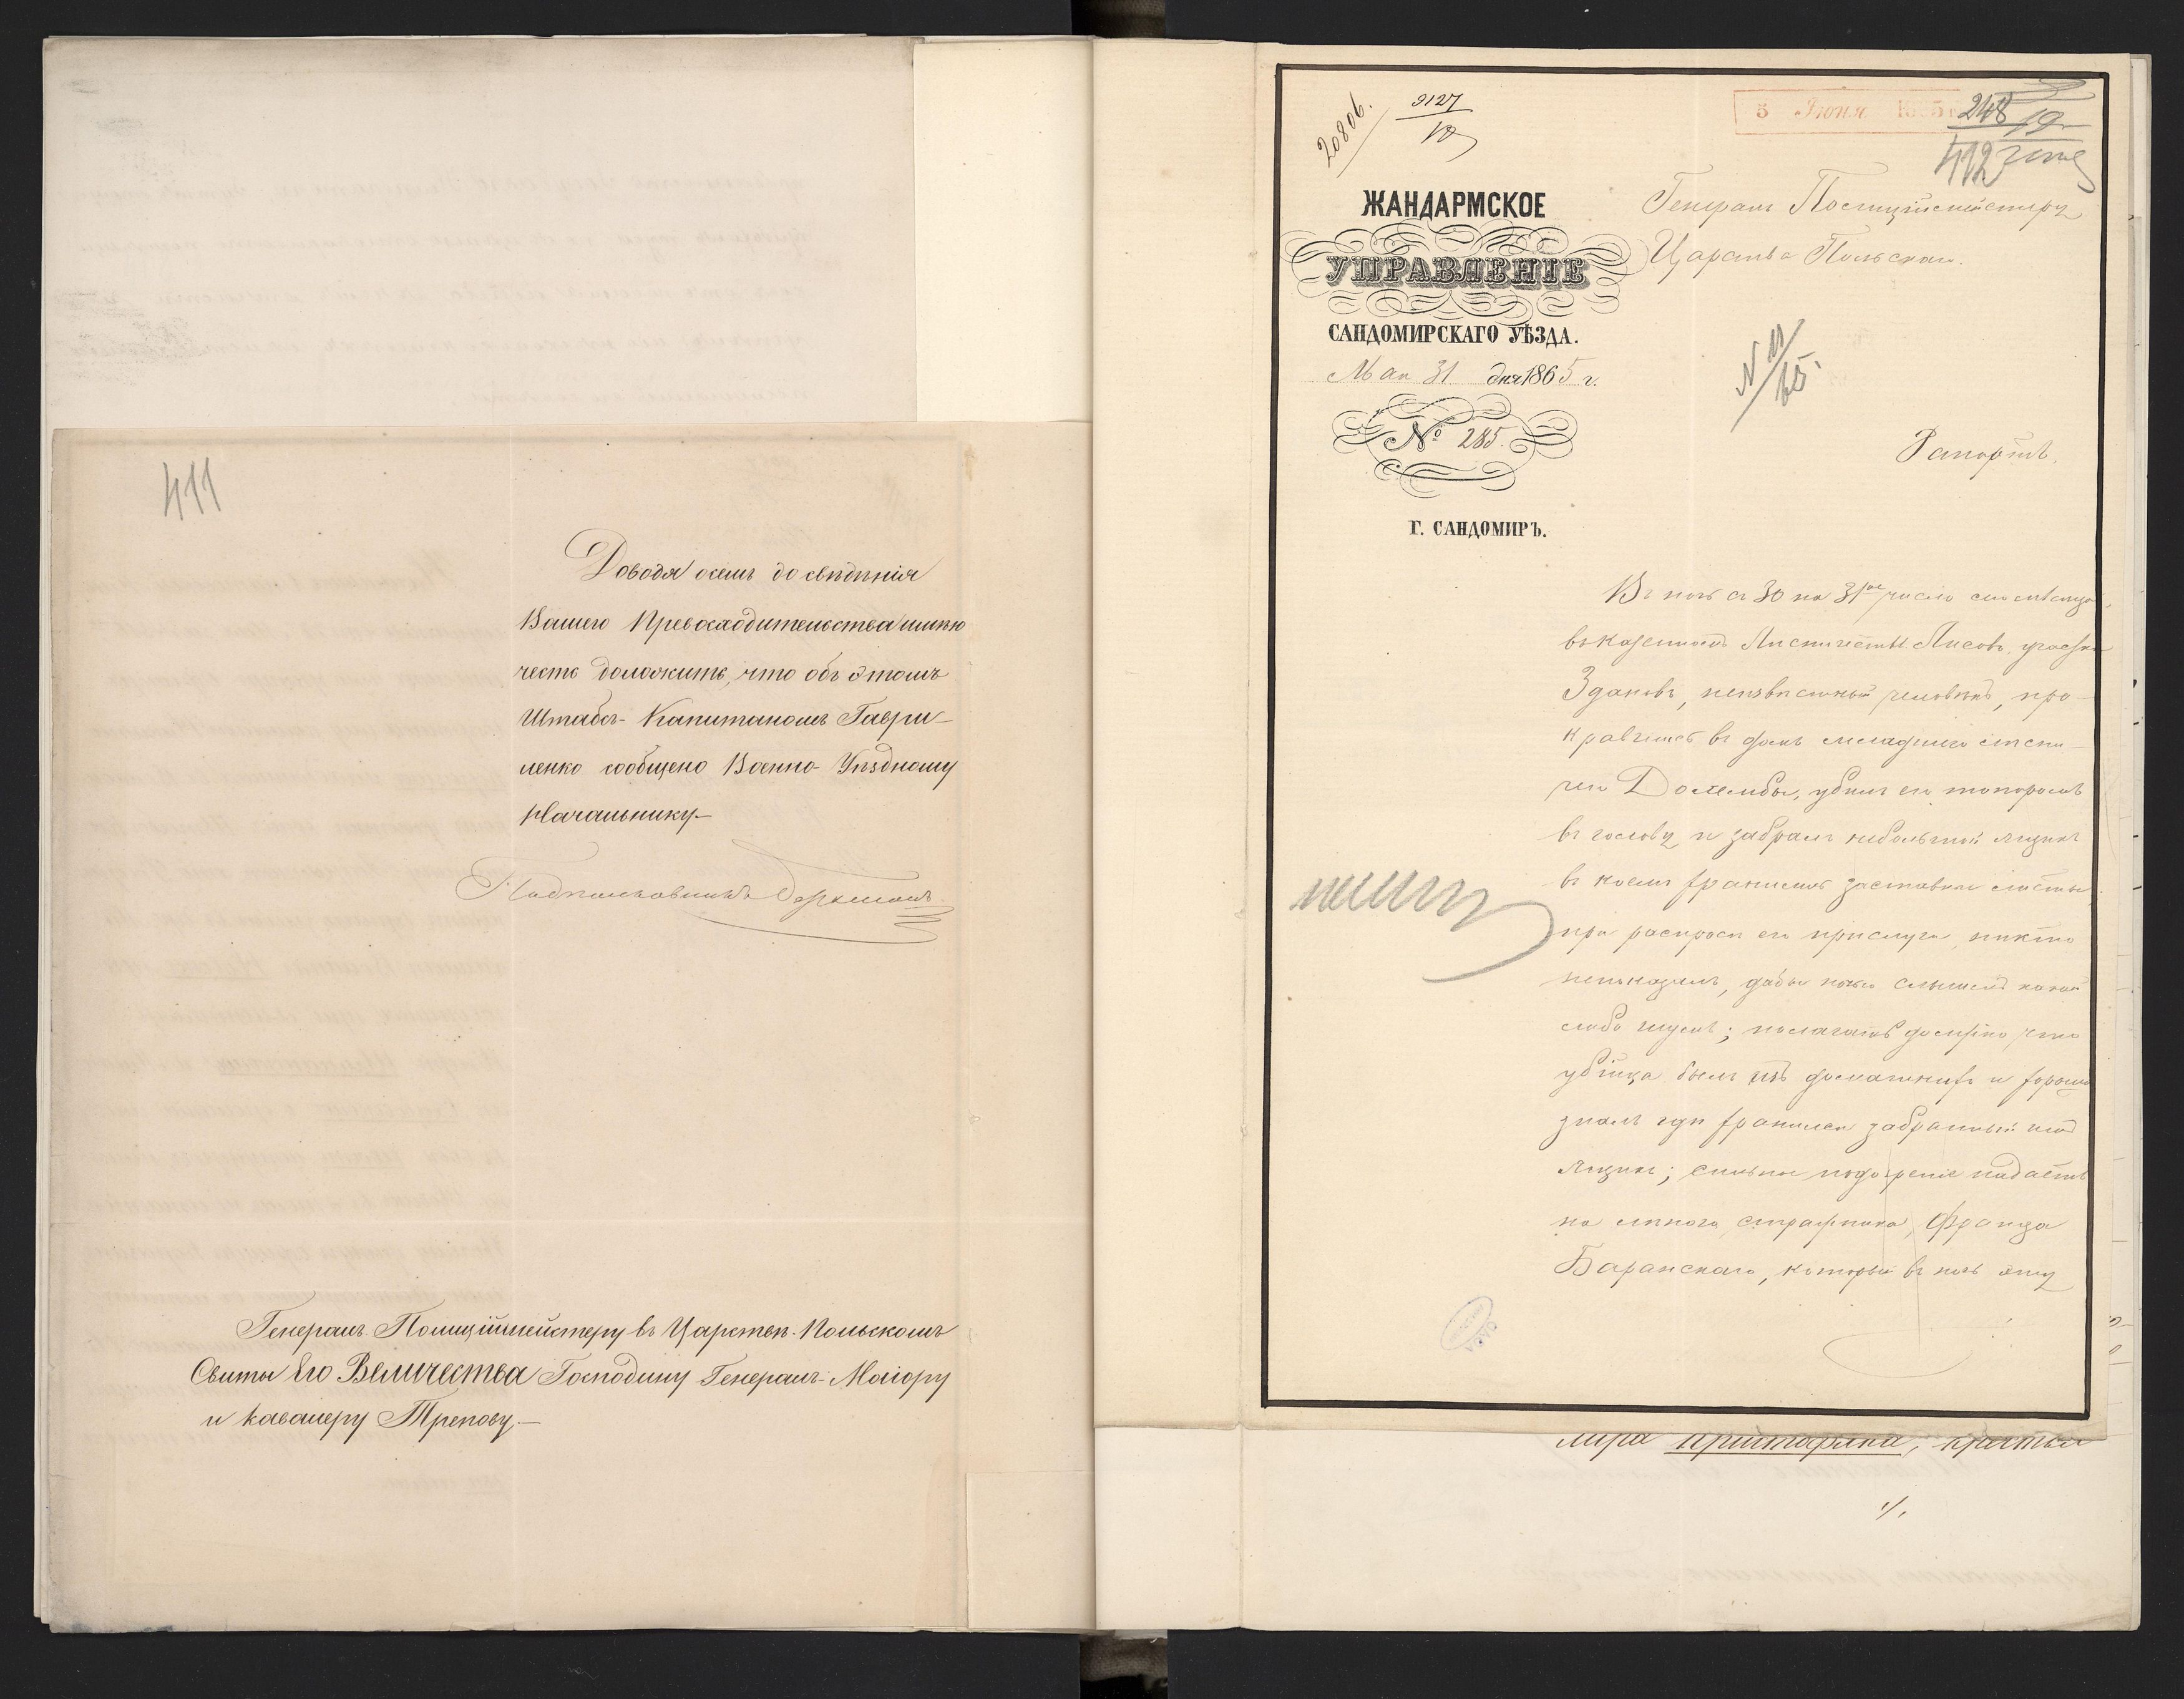 411
Доводя осемъ до свѣдѣнія
Вашего Превосходительства имѣю
честь доложить, что объ этомъ
Штабсъ-Капитаномъ Гаври-
ленко сообщено Военно-Уѣздному
Начальнику.—
Подполковникъ
Генералъ-Полиціймейстеру въ Царствѣ Польскомъ
Свиты Его Величества Господину Генералъ-Маіору
и Кавалеру Трепову.—
20806.
9127
5 Іюня
248
19
412
ЖАНДАРМСКОЕ
УПРАВЛЕНІЕ
САНДОМИРСКАГО УѢЗДА.
Мая 31 дня 1865 г.
№ 285.
Г. САНДОМИРЪ.
Генералъ Полиціймейстеру
Царства Польскаго.
N 11/65.
Рапортъ.
Въ ночь съ 30 на 31ое число сего мѣсяца,
въ казенномъ Лѣсничествѣ Лисовъ,
Здановъ, неизвѣстный человѣкъ, про-
кравшись въ домъ младшаго лѣсни-
чаго, убилъ его топоромъ
въ голову и забралъ небольшой ящикъ
въ коемъ хранились заставныя листы,
при распросѣ его прислуги, никто
непоказалъ, дабы ночью слышалъ какой
либо шумъ; полагать должно что
убійца былъ изъ домашнихъ и хорошо
зналъ гдѣ хранился забранный имъ
ящикъ; сильное подозреніе падаетъ
на лѣснаго стражника, Франца
Баранскаго, который въ ночь эту